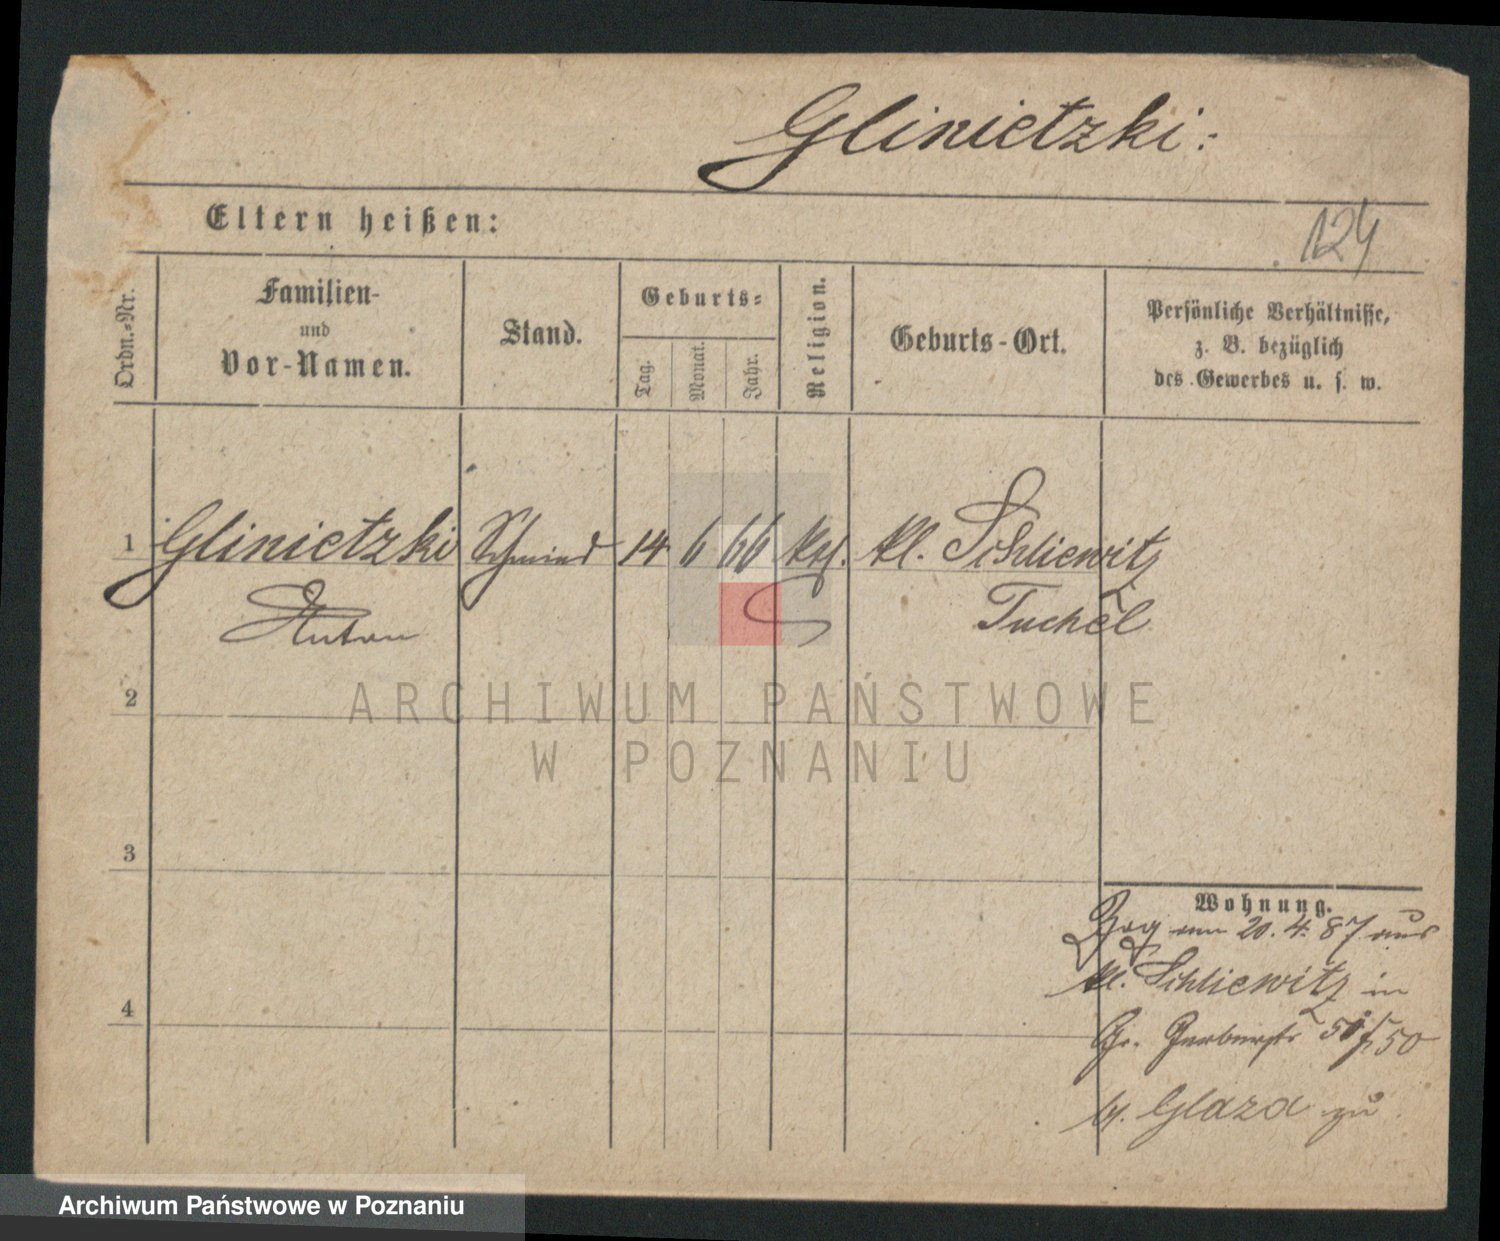 Glinietzki:
Eltern heißen:
124
Ordn.-Nr.
Familien-
und
Vor-Namen.
Stand.
Geburts-
Tag.
Monat.
Jahr.
Religion.
Geburts-Ort.
Persönliche Verhältnisse,
z. B. bezüglich
des Gewerbes u. s. w.
1 Glinietzki Schmied 14 6 66 kth. Kl. Schliewitz
Anton Tuchel
2
ARCHIWUM PAŃSTWOWE
W POZNANIU
3
Wohnung.
Zog am 20. 4. 87 aus
Kl. Schliewitz in
4
Gr. Gerberstr 50
b. Glaza zu
Archiwum Państwowe w Poznaniu